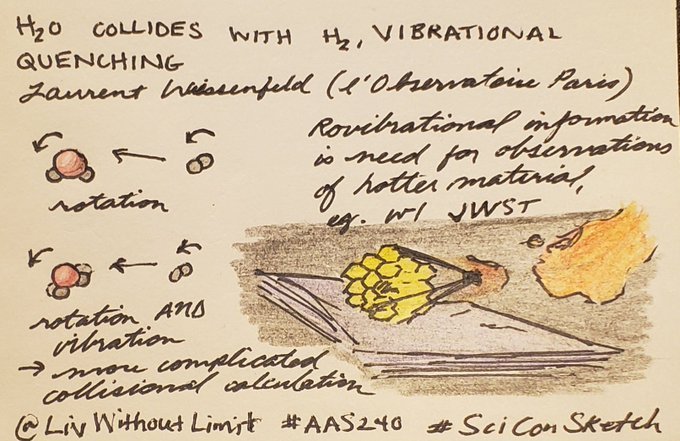 H2O COLLIDES WITH H2, VIBRATIONAL
QUENCHING
Laurent Wiesenfeld (l'Observatoire Paris)
Rovibrational information
is need for observations
of hotter material,
eg. w/ JWST
rotation
rotation AND
vibration
→ more complicated
collisional calculation
@LivWithoutLimit #AAS240 #SciConSketch